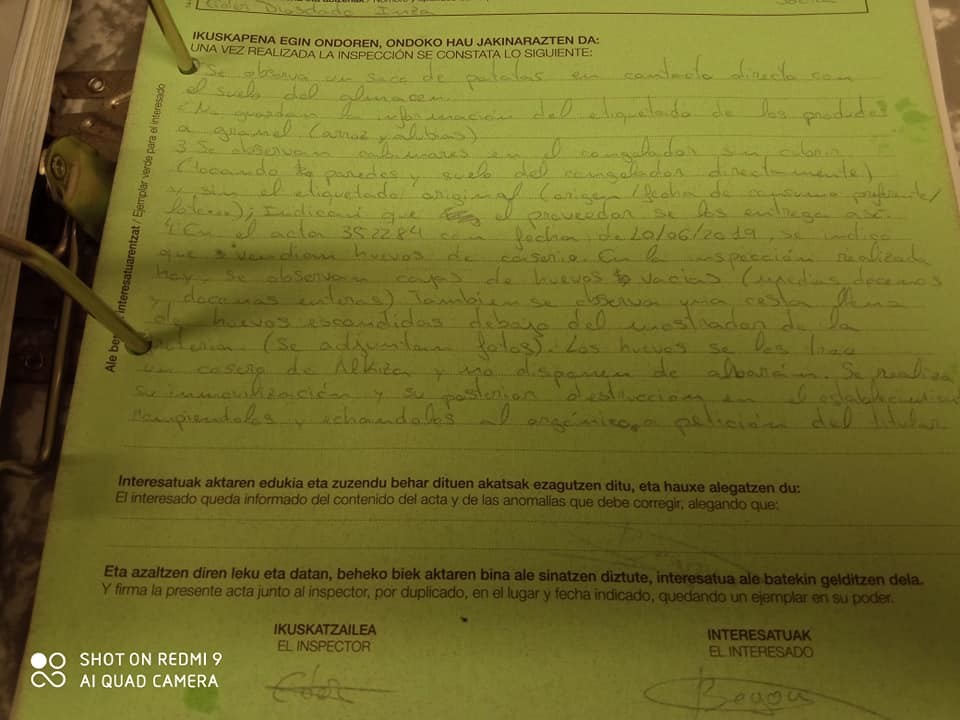 Eider Diosdado Inza
IKUSKAPENA EGIN ONDOREN, ONDOKO HAU JAKINARAZTEN DA:
UNA VEZ REALIZADA LA INSPECCIÓN SE CONSTATA LO SIGUIENTE:
Se observa un saco de patatas en contacto directo con
el suelo del almacen.
No guardan la información del etiquetado de los productos
a granel (arroz y alubias)
3 Se observan calamares en el congelador sin cubrir
(tocando paredes y suelo del congelador directamente)
y sin el etiquetado original (origen / fecha de consumo preferente /
); Indican que el proveedor se los entrega así.
4 En el acta 352284 con fecha de 20/06/2019, se indica
que vendian huevos de caserio. En la inspección realizada
hoy, se observan cajas de huevos vacías (medias docenas
y docenas enteras) Tambien se observa una cesta llena
de huevos escondidas debajo del mostrador de la
(Se adjuntan fotos). Los huevos se los trae
un casero de Alkiza y no disponen de albarán. Se realiza
su inmovilización y su posterior destrucción en el establecimiento
rompiendolos y echandolos al orgánico, a petición del titular
Ale berdea interesatuarentzat / Ejemplar verde para el interesado
Interesatuak aktaren edukia eta zuzendu behar dituen akatsak ezagutzen ditu, eta hauxe alegatzen du:
El interesado queda informado del contenido del acta y de las anomalías que debe corregir, alegando que:
Eta azaltzen diren leku eta datan, beheko biek aktaren bina ale sinatzen diztute, interesatua ale batekin gelditzen dela.
Y firma la presente acta junto al inspector, por duplicado, en el lugar y fecha indicado, quedando un ejemplar en su poder.
IKUSKATZAILEA
EL INSPECTOR
INTERESATUAK
EL INTERESADO
Eider
Begoñ
SHOT ON REDMI 9
AI QUAD CAMERA